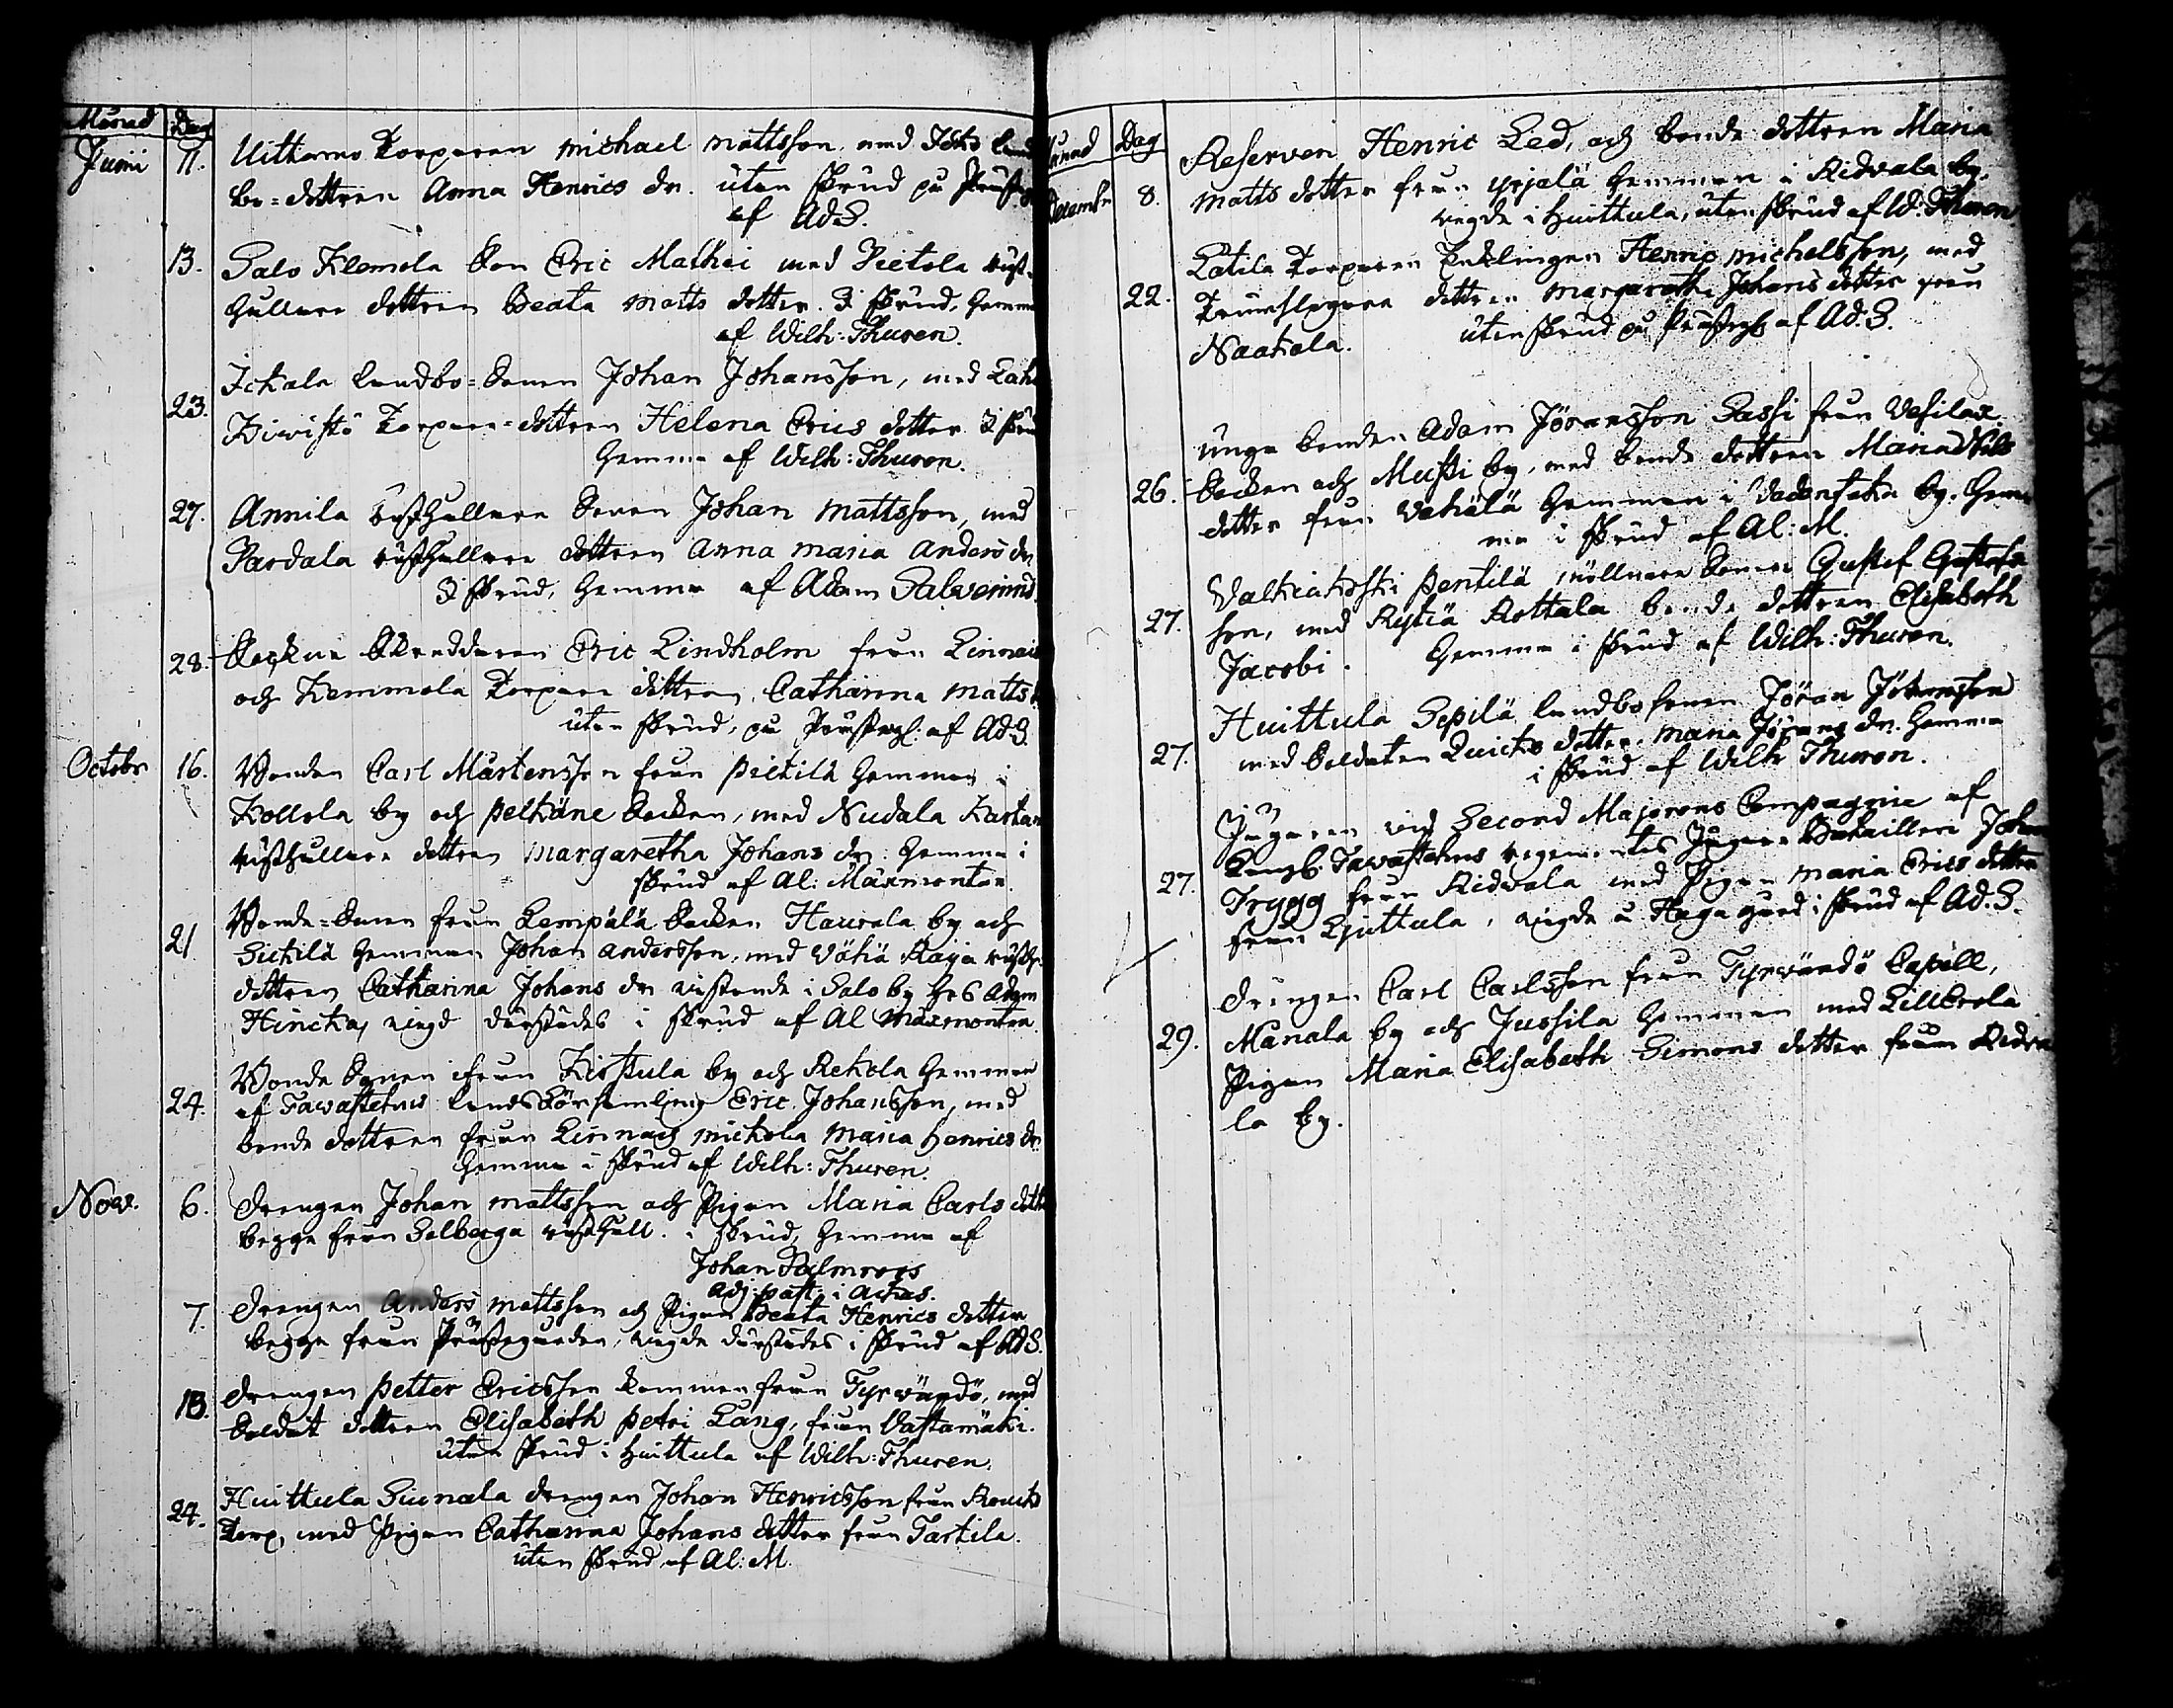 Månad Dag
Junii 11. Uittamo Torparen Michael Mattsson, med
bo=dottren Anna Henrics dr. utan skrud på
af Ad. S.
13. Salo Klemola Son Eric Mathei med Pietola rust-
hållare dottren Beata Matts dotter. I skrud, hemma
af Wilh: Thuren.
23. Ickala landbo=Sonen Johan Johansson, med
Kiwistö Torpare=dottren Helena Erics dotter I
hemma af Wilh: Thuren.
27. Annila rusthållare Sonen Johan Mattsson, med
Pardala rusthållare dottren Anna Maria Anders dr
I skrud, hemma af Adam Salvenius.
28. Sockne Skreddaren Eric Lindholm från
och Kemmola Torpare dottren, Catharina Matts
utan skrud, på af Ad. S.
Octobr. 16. Bonden Carl Mårtensson från Pietilä hemman i
Kollola by och Pelkäne Socken, med Nudala
rusthållare dottren Margaretha Johans dr. hemma i
skrud af Al: Maxmontan.
21 Bonde=Sonen från Lempälä Socken Hauvola by och
Sickilä hemman Johan Andersson, med Vähä Raija
dottren Catharina Johans dr vistande i Salo by hos Adam
Hincka, vigd därstädes i skrud af Al Maxmontan
24. Bonde Sonen ifrån by och Rekola hemman
af Tawastehus lands Församling Eric Johansson, med
bonde dottren från Mickola Maria Henrics dr
hemma i skrud af Wilh: Thuren.
Nov. 6. Drengen Johan Mattsson och Pigan Maria Carls
begge från Selberga rusthåll. i skrud, hemma af
Johan Palmroos
Adj: past: i Ackas.
7. Drengen Anders Mattsson och Pigan Beata Henrics dotter
begge från Prästegården, vigde därstädes i skrud af Ad S.
13. Drengen Petter Ericsson kommen från Tyrwändö, med
Soldat dottren Elisabeth Petri Lång, från Vastamäki.
utan skrud i Huittula af Wilh: Thuren.
24. Huittula Siunala drengen Johan Henricsson från
Torp, med Pigan Catharina Johans dotter från Tartila.
utan skrud af Al: M.
Månad Dag
December 8. Reserven Henric Led, och bonde dottren Maria
Matts dotter från Yrjälä hemman i Ridvala by.
vigde i Huittula, utan skrud af W: Thuren
22. Latila Torparen Enklingen Henric Michelsson, med
dottren Margaretha Johans dotter från
Naakala. utan skrud på af Ad: S.
26. Unge bonden Adam Jöransson Sassi från Vesilax
Socken och by, med bonde dottren Maria
dotter från Vähälä hemman i by. hem-
ma i skrud af Al: M.
27. Valkiakoski Pentilä möllnare Sonen Gustaf
son, med Rystiä Rottala bonde dottren Elisabeth
Jacobi. hemma i skrud af Wilh: Thuren.
27. Huittula Sepilä landbo sonen Jöran
med Soldaten dotter, Maria Jörans dr. hemma
i skrud af Wilh Thuren.
27. Jägaren vid Second Majorens Compagnie af
Kongl. Tawastehus regementes Jägare Bataillon Johan
Trygg från Ridwala med Pigan Maria Erics dotter
från, vigde å Haga gård i skrud af Ad. S.
29. Drengen Carl Carlsson från Tyrwändö Capell,
Manala by och Jussila hemman med
Pigan Maria Elisabeth Simons dotter från Ridva
la by.